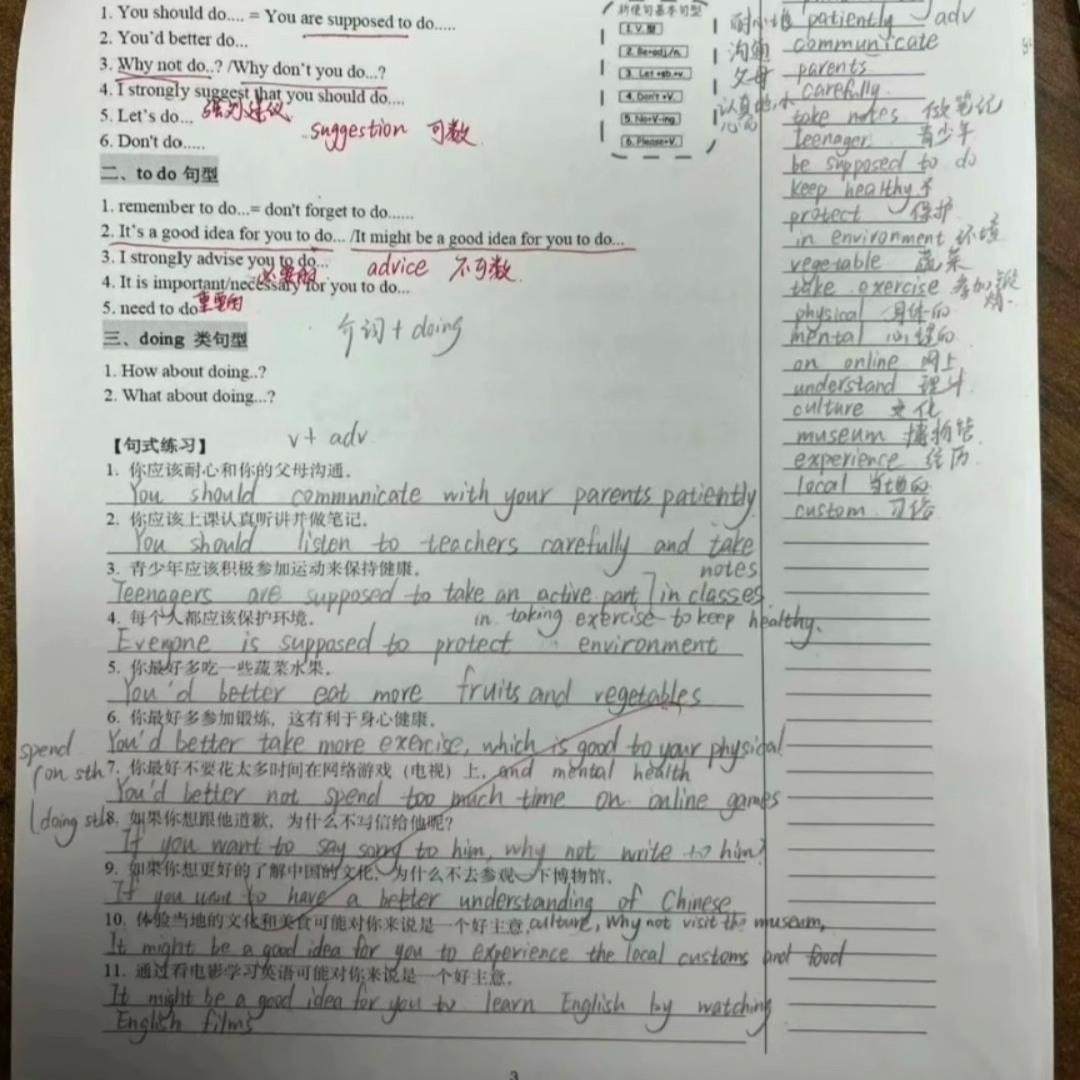 1. You should do.... = You are supposed to do.....
2. You'd better do...
3. Why not do..? /Why don't you do...?
4. I strongly suggest that you should do....
5. Let's do... 强烈建议
suggestion 可数
6. Don't do.....
祈使句基本句型
1. V.型
2. Be+adj./n.
3. Let +sb.+v.
4. Don't +V.
5. No+V-ing.
6. Please+V.
二、to do 句型
1. remember to do...= don't forget to do......
2. It's a good idea for you to do... /It might be a good idea for you to do...
3. I strongly advise you to do...
advice 不可数
必要的
4. It is important/necessary for you to do...
5. need to do 重要的
介词 + doing
三、doing 类句型
1. How about doing..?
2. What about doing...?
v+ adv
【句式练习】
1. 你应该耐心和你的父母沟通。
You should communicate with your parents patiently
2. 你应该上课认真听讲并做笔记。
You should listen to teachers carefully and take
notes
3. 青少年应该积极参加运动来保持健康。
Teenagers are supposed to take an active part in classes
in taking exercise to keep healthy.
4. 每个人都应该保护环境。
Everyone is supposed to protect environment
5. 你最好多吃一些蔬菜水果。
You'd better eat more fruits and vegetables
6. 你最好多参加锻炼，这有利于身心健康。
You'd better take more exercise, which is good to your physical
and mental health
spend
on sth
doing sth
7. 你最好不要花太多时间在网络游戏（电视）上。
You'd better not spend too much time on online games
8. 如果你想跟他道歉，为什么不写信给他呢？
If you want to say sorry to him, why not write to him?
9. 如果你想更好的了解中国的文化，为什么不去参观一下博物馆。
If you want to have a better understanding of Chinese
culture, why not visit the museum,
10. 体验当地的文化和美食可能对你来说是一个好主意。
It might be a good idea for you to experience the local customs and food
11. 通过看电影学习英语可能对你来说是一个好主意。
It might be a good idea for you to learn English by watching
English films
耐心地 patiently adv
沟通 communicate
父母 parents
认真地 carefully
take notes 做笔记
teenager 青少年
be supposed to do
keep healthy
protect 保护
in environment 环境
vegetable 蔬菜
take exercise 参加锻炼
physical 身体的
mental 心理的
on online 网上
understand 理解
culture 文化
museum 博物馆
experience 经历
local 当地的
custom 习俗
3